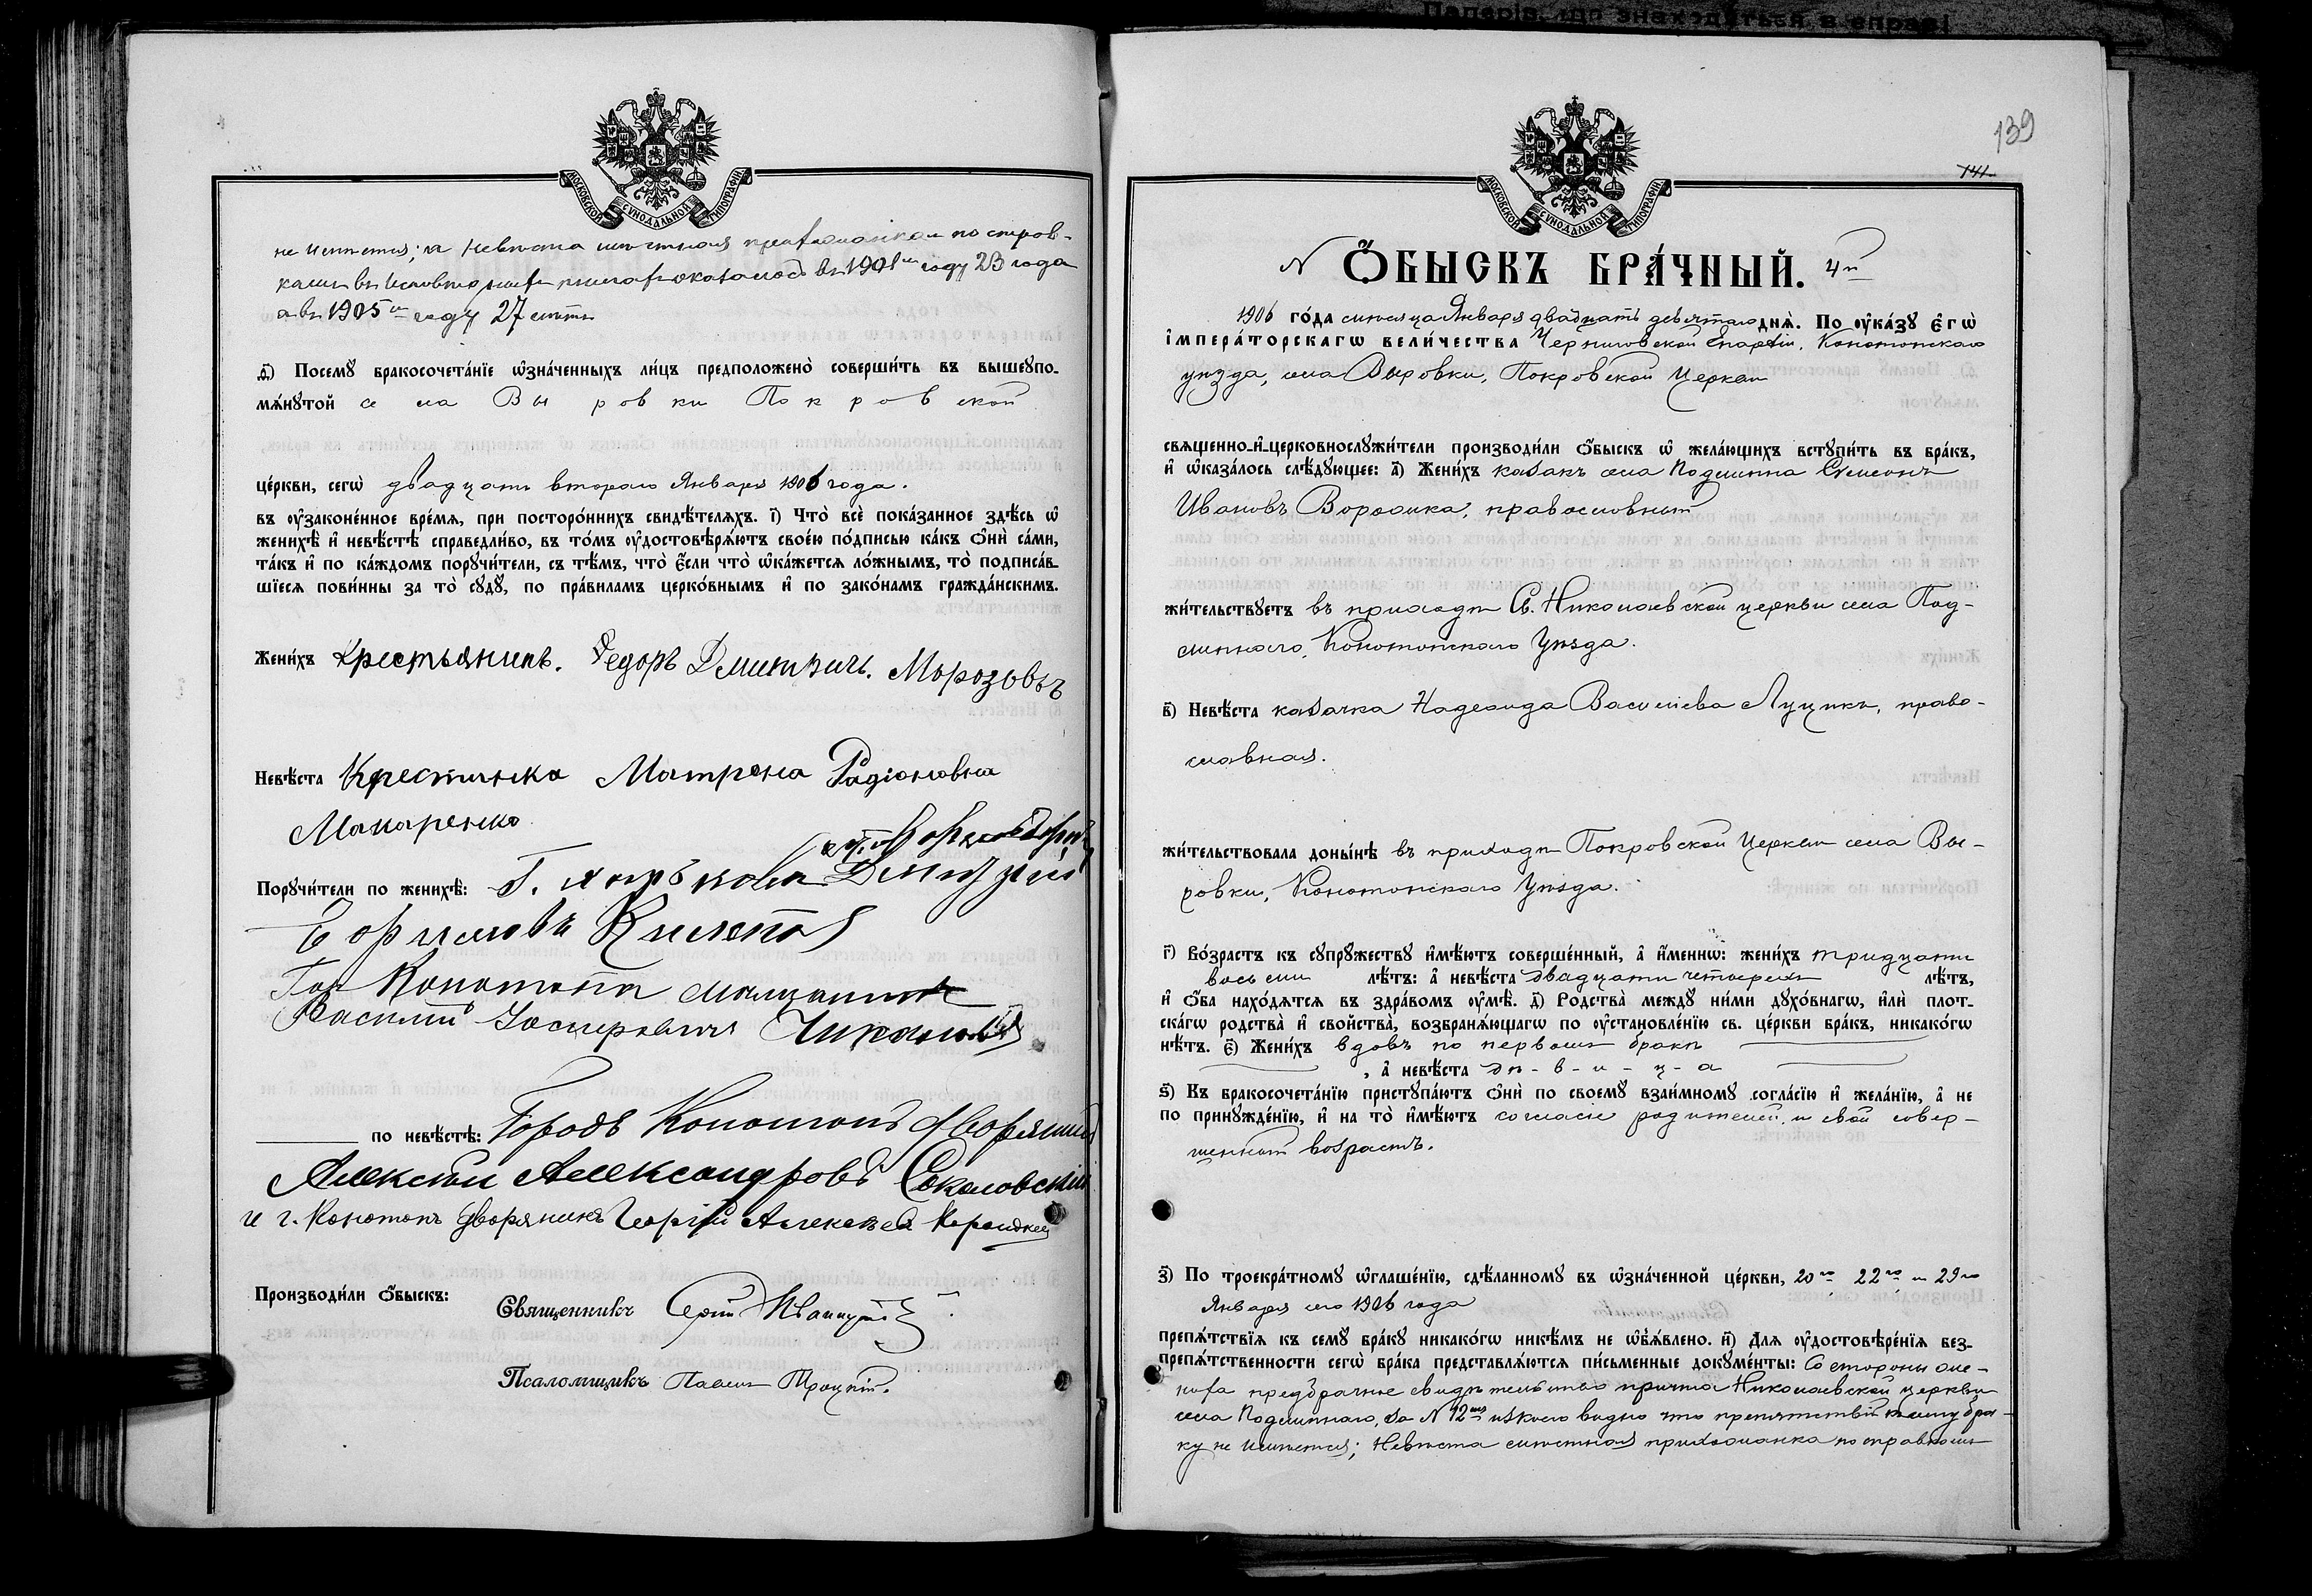 Папорів, що знаходяться в справі
МОСКОВСКОЙ СѴНОДАЛЬНОЙ ТИПОГРАФІИ
не имѣется; а невѣста мѣстная прихожанка по справ-
камъ въ исповѣдныхъ книгахъ оказалось въ 1901 м году 23 года
а въ 1905 м году 27 лѣтъ
ѳ҃) Посемꙋ̀ бракосочета́нїе ѡ҆зна́ченныхъ ли́цъ предположено̀ соверши́ть въ вышеꙋпо-
мѧ́нꙋтой села Выровки Покровской
це́ркви, сегѡ̀ двадцать второго Января 1906 года.
въ ᲂу҆законе́нное вре́мѧ, при посторо́ннихъ свидѣ́телѧхъ. і҃) Что̀ всѐ пока́занное здѣ́сь ѡ҆
женихѣ̀ и҆ невѣ́стѣ справедли́во, въ то́мъ ᲂу҆достовѣрѧ́ютъ свое́ю по́дписью ка́къ ѻ҆нѝ са́ми,
та́къ и҆ по ка́ждомъ порꙋчи́тели, съ тѣ́мъ, что̀ є҆́сли что̀ ѡ҆ка́жетсѧ ло́жнымъ, то̀ подписа́в-
шїесѧ пови́нны за то̀ сꙋдꙋ̀, по пра́виламъ церко́внымъ и҆ по зако́намъ гражда́нскимъ.
Жени́хъ Крестьянинъ. Ѳедоръ Дмитвичь. Морозовъ
Невѣ́ста Крестинка Матрена Радіоновна
Макаренко
Порꙋчи́тели по женихѣ̀: Г. Харьковъ Дмитрій
Гор Конотопъ мѣщанинъ
Василий Чикаловъ
по невѣ́стѣ: Городъ Конотопъ дворянинъ
Алексѣй Александровъ Соколовскій
и г. Конотопъ дворянинъ Георгій Алексѣевъ
Производи́ли ѻ҆́быскъ:
Священникъ Сергій Иваницкій
Псаломщикъ Павелъ Троцкій.
139
141
МОСКОВСКОЙ СѴНОДАЛЬНОЙ ТИПОГРАФІИ
N Ѻ҆́БЫСКЪ БРА́ЧНЫЙ. 4й
1906 го́да мѣсяца Января двадцать девятаго днѧ̀. По ᲂу҆ка́зꙋ Є҆гѡ̀
і҆мпера́торскагѡ вели́чества Черниговской Епархіи, Конотопскаго
уѣзда, села Выровки, Покровской Церкви
свѧщенно-и҆-церковнослꙋжи́тели производи́ли ѻ҆́быскъ ѡ҆ жела́ющихъ встꙋпи́ть въ бра́къ,
и҆ ѡ҆каза́лось слѣ́дꙋющее: а҃) Жени́хъ казакъ села Подлипна Симеонъ
Ивановъ Ворожка, православный
жи́тельствꙋетъ въ приходѣ Св. Николаевской церкви села Под-
липнаго, Конотопскаго Уѣзда.
в҃) Невѣ́ста казачка Надежда Васильева Луцикъ, право-
славная.
жи́тельствовала доны́нѣ въ приходѣ Покровской Церкви села Вы-
ровки, Конотопскаго Уѣзда.
г҃) Во́зрастъ къ сꙋпрꙋ́жествꙋ и҆мѣ́ютъ соверше́нный, а҆ и҆́меннѡ: жени́хъ тридцати
восьми лѣ́тъ: а҆ невѣ́ста двадцати четырехъ лѣ́тъ,
и҆ ѻ҆́ба нахо́дѧтсѧ въ здра́вомъ ᲂу҆мѣ̀. д҃) Родства̀ между ни́ми дꙋхо́внагѡ, и҆лѝ плот-
ска́гѡ родства̀ и҆ сво́йства, возбранѧ́ющагѡ по ᲂу҆становле́нїю св. це́ркви бра́къ, никако́гѡ
нѣ́тъ. є҃) Жени́хъ вдовъ по первомъ бракѣ
, а҆ невѣ́ста дѣ-в-и-ц-а
ѕ҃) Къ бракосочета́нїю пристꙋпа́ютъ ѻ҆нѝ по своемꙋ̀ взаи́мномꙋ согла́сїю и҆ жела́нїю, а҆ не
по принꙋжде́нїю, и҆ на то̀ и҆мѣ́ютъ согласіе родителей, и свой совер-
шенный возрастъ.
з҃) По троекра́тномꙋ ѡ҆глаше́нїю, сдѣ́ланномꙋ въ ѡ҆зна́ченной це́ркви, 20 го 22 го и 29 го
Января сего 1906 года
препѧ́тствїѧ къ семꙋ̀ бра́кꙋ никако́гѡ никѣ́мъ не ѡ҆б̾ѧ́влено. и҃) Длѧ ᲂу҆достовѣре́нїѧ без-
препѧ́тственности сегѡ̀ бра́ка представлѧ́ютсѧ пи́сьменные докꙋме́нты: Со стороны же-
ниха предбрачное свидѣтельство причта Николаевской церкви
села Подлипнаго, за N 12 мъ изъ коего видно что препятствій къ сему бра-
ку не имѣется; Невѣста мѣстная прихожанка по справкамъ